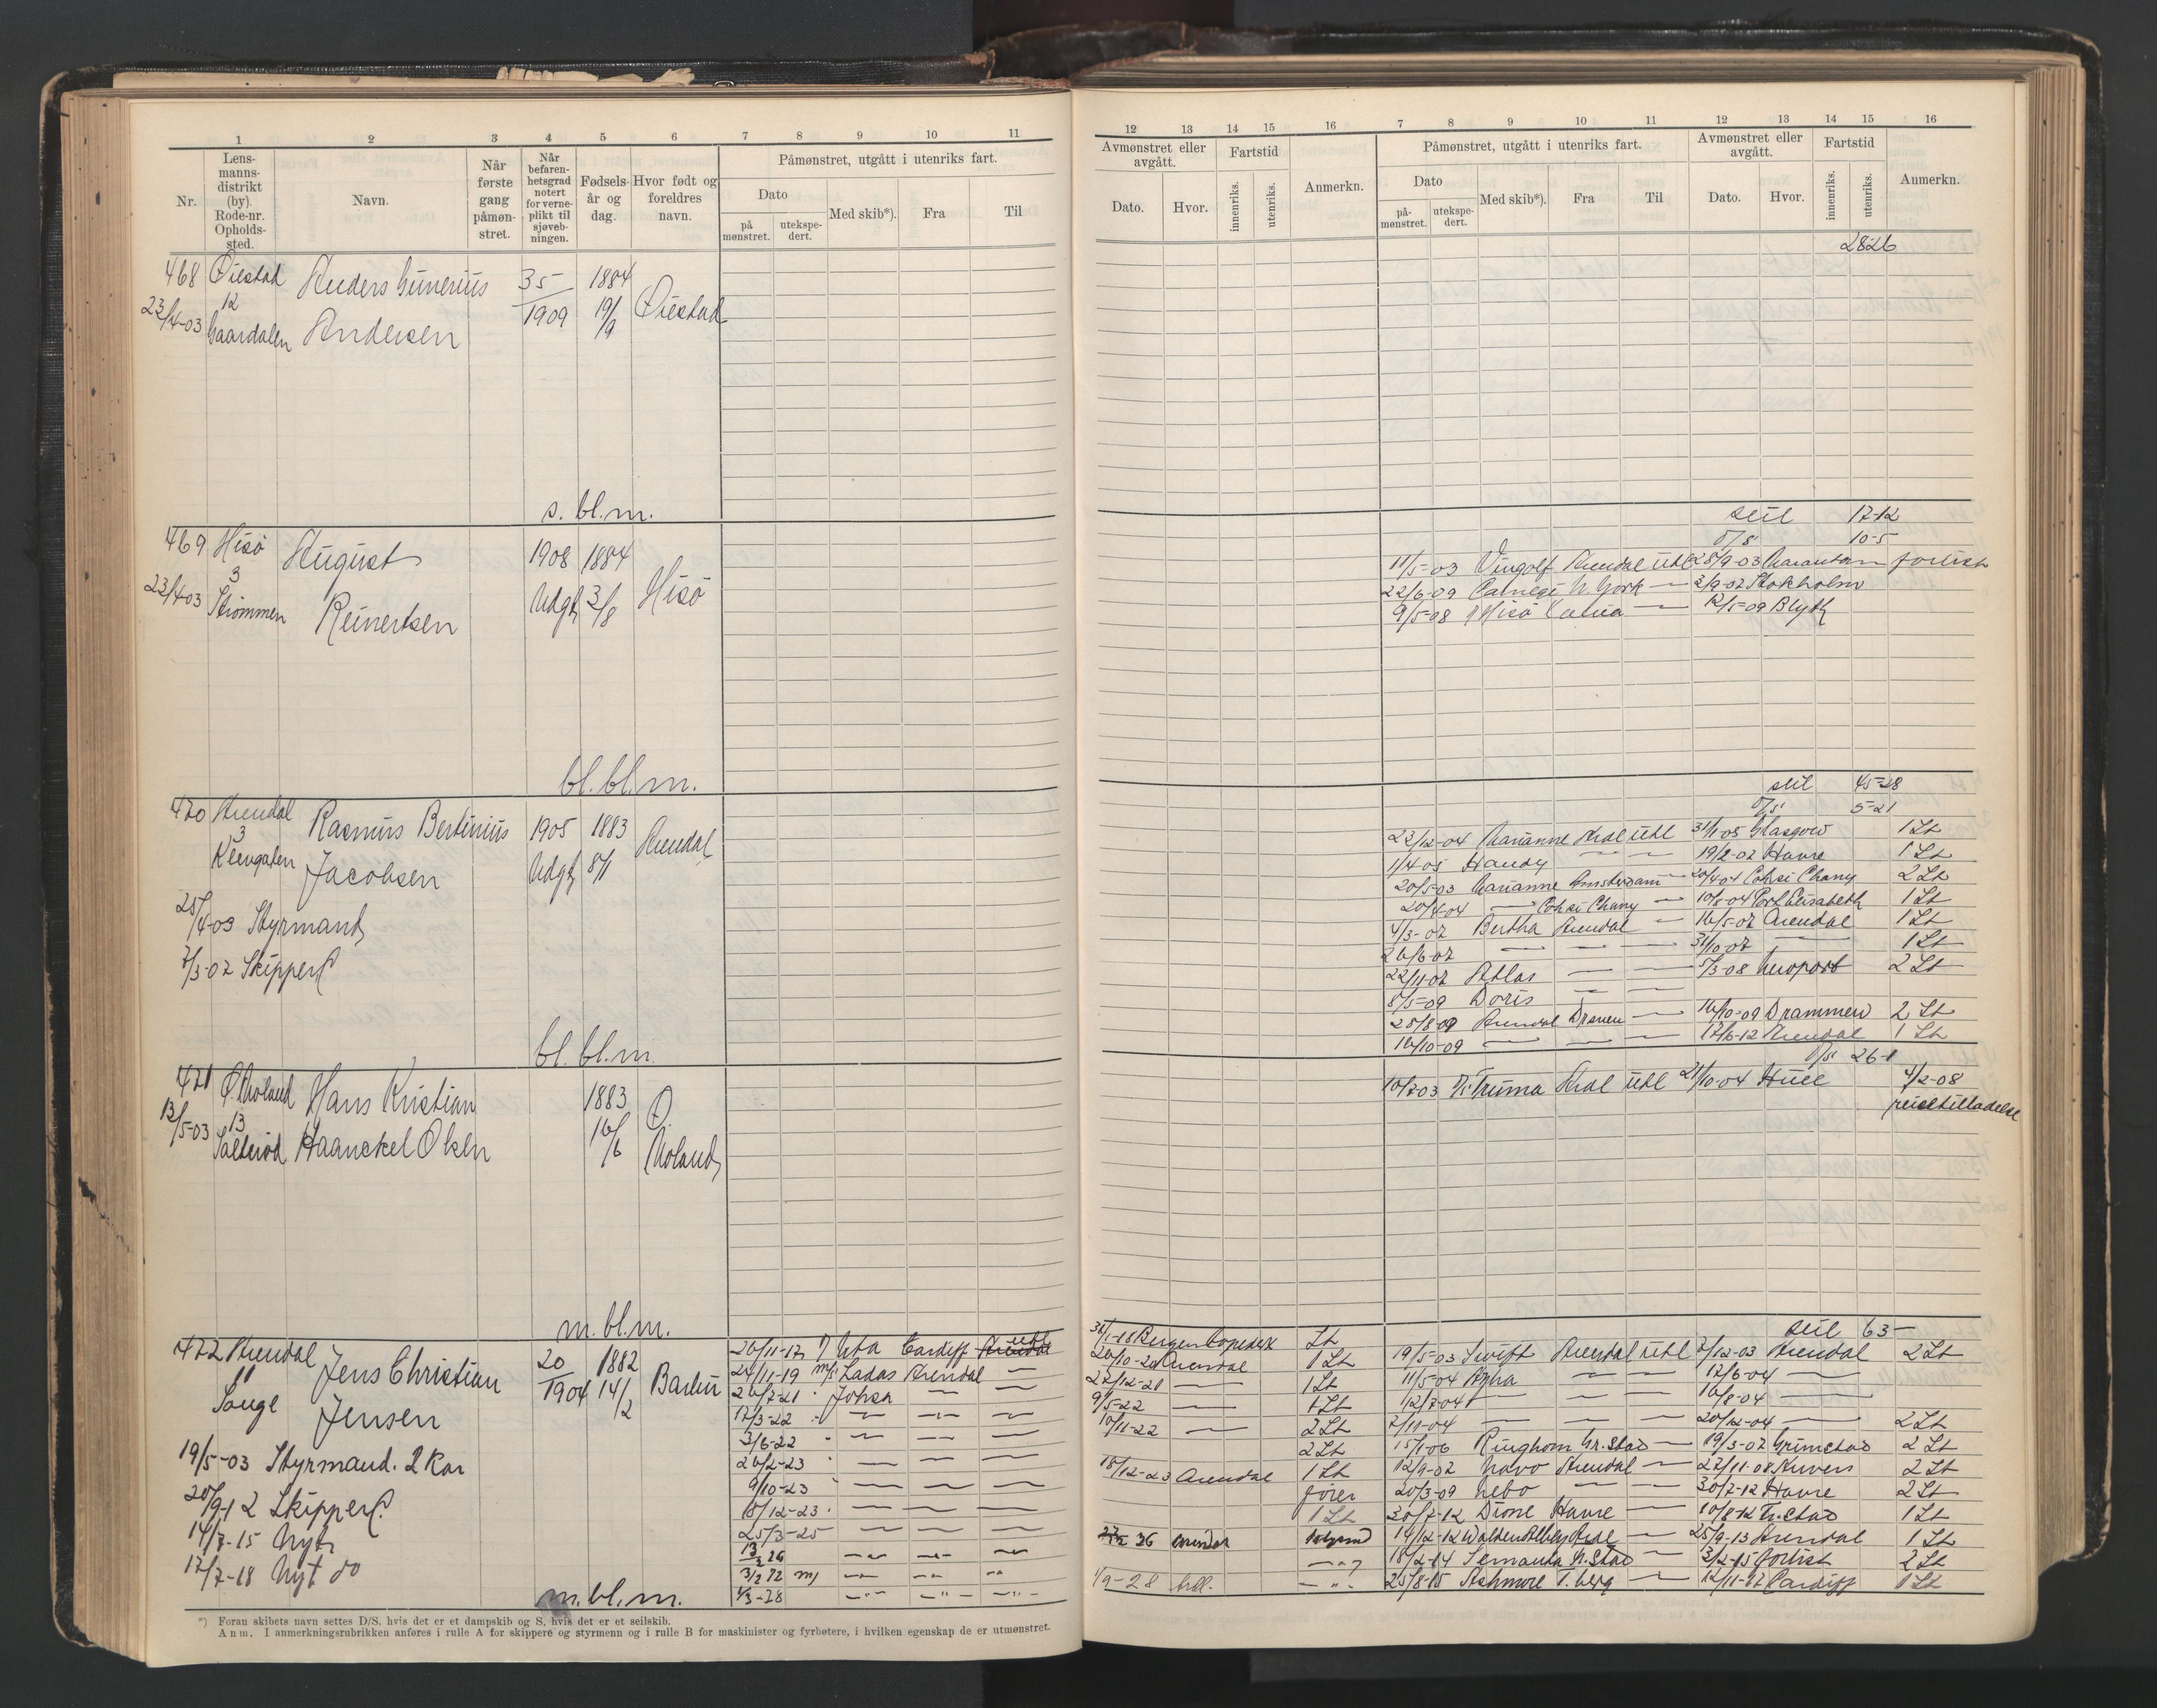 1 2 3 4 5 6 7 8 9 10 11
Nr.
Lens-
manns-
distrikt
(by).
Rode-nr.
Opholds-
sted.
Navn.
Når
første
gang
påmøn-
stret.
Når
befaren-
hetsgrad
notert
for verne-
plikt til
sjøveb-
ningen.
Fødsels-
år og
dag.
Hvor født og
foreldres
navn.
Påmønstret, utgått i utenriks fart.
Dato
på
mønstret.
utekspe-
dert.
Med skib*).
Fra
Til
468 Øiestad Anders Gunerius 35 1884
23/4-03 12 1909 19/9 Øiestad
Gaardalen Andersen
s. bl.m.
469 Hisö August 1908 1884
23/4-03 3 Udgt 3/8 Hisö
Strømmen Reinertsen
bl. bl. m.
470 Arendal Rasmus Bertinius 1905 1883 Arendal
3 Jacobsen Udgt 8/1
25/4-03 Styrmand
7/3-07 Skipper
bl. bl. m.
471 Ø. Moland Hans Kristian 1883 Ø.
13/5-03 13 16/6 Moland
Salterød Haanckel Olsen
m. bl. m.
472 Arendal Jens Christian 20 1882
11 1904 14/2
Songe Jensen
19/5-03 Styrmand. 2 Kar
20/9-12 Skipper
14/7-15 Nyt
17/7-18 Nyt do
m. bl. m.
20/11-17 Cardiff
24/11-19 m/s Ladas Arendal —
26/7-21 " Johsa — —
17/3-22 " — — —
3/6-22 " — — —
26/2-23 " — — —
9/10-23 " — — —
18/12-23 " — — —
25/3-25 — — —
13/3 26 — — —
1/3-28 — — —
*) Foran skibets navn settes D/S, hvis det er et dampskib og S, hvis det er et seilskib.
Anm. I anmerkningsrubrikken anføres i rulle A for skippere og styrmenn og i rulle B for maskinister og fyrbøtere, i hvilken egenskap de er utmønstret.
12 13 14 15 16 7 8 9 10 11 12 13 14 15 16
Avmønstret eller
avgått.
Dato.
Hvor.
Fartstid
innenriks.
utenriks.
Anmerkn.
Påmønstret, utgått i utenriks fart.
Dato
på-
mønstret.
utekspe-
dert.
Med skib*).
Fra
Til
Avmønstret eller
avgått.
Dato.
Hvor.
Fartstid
innenriks.
utenriks.
Anmerkn.
28-26
seil 17-12
D/S 10-5
11/5-03 Vingolf Arendal utl 28/9-03 forlist
22/6-09 N. York — 3/9-07 Stokholm
9/5-08 Hisö — 12/5-09 Blyth
seil 45-28
D/S 5-21
23/12-04 Marianne Aral utl 31/1-05 Glasgow 1 St
1/4-05 Handy — — 19/2-07 Havre 1 St
20/5-03 Marianne Amsterdam — 20/4-04 2 St
20/4-04 — — 10/5-04 Port Elisabeth 1 St
4/3-07 Bertha Arendal — 16/5-07 Arendal 1 St
26/6-07 — — — 31/10-07 — 1 St
22/11-07 Atlas — — 5/3-08 Newport 2 St
8/5-09 Doris — —
28/8-09 Arendal — 16/10-09 Drammen 2 St
16/10-09 — — — 17/6-12 Arendal 1 St
D/S 26-1
10/7-03 D/S Truma Aral utl 21/10-04 Hull 4/2-08
reisetilladelse
seil 63-
31/1-18 Bergen St
26/10-20 Arendal 1 St 19/5-03 Swift Arendal utl 7/12-03 Arendal 2 St
27/12-21 — 1 St 11/5-04 — — 17/6-04 —
9/5-22 — 1 St 12/7-04 — — 16/8-04 —
10/11-22 — 2 St 7/11-04 — — — 20/12-04 — 2 St
2 St 15/1-06 Ringhorn Gr.stad — 19/3-07 Grimstad 2 St
18/12-23 Arendal 1 St 12/9-07 Arendal — 27/11-08 Anvers 2 St
fører 20/3-09 Nebo — — 30/7-12 Havre 2 St
1 St 30/7-12 Dione Havre — 10/8-12 Fr.stad 1 St
14/12-12 — 25/9-13 Arendal 1 St
18/2-14 — 3/2-15 forlist 2 St
1/9-28 — 25/8-15 Ashmore T.berg — 12/11-17 Cardiff 1 St